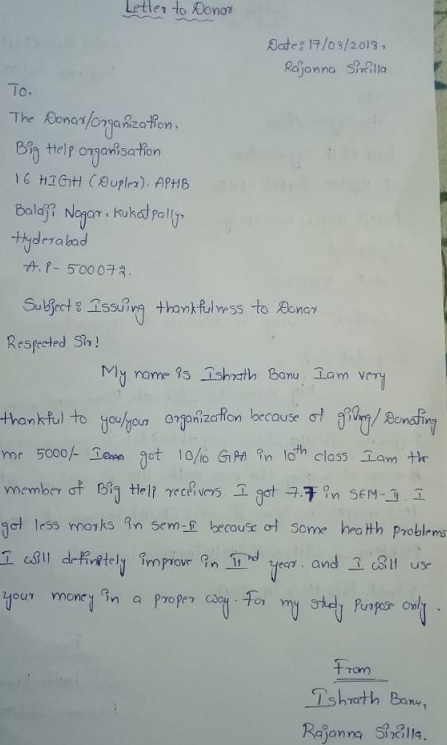 Letter to Donor
Date: 17/03/2018,
Rajanna Sircilla
To,
The Donar/organization,
Big Help organisation
16 HIGH (Duplex). APHB
Balaji Nagar, Kukatpally,
Hyderabad
A.P- 500072.
Subject: Issuing thankfulness to Donar
Respected Sir!
My name is Ishrath Banu. Iam very
thankful to you/your organization because of giving/Donating
me 5000/- got 10/10 GPA in 10th class. Iam the
member of Big Help receivers. I got 7.7 in SEM-II. I
got less marks in sem-II because of some health problems
I will definitely improve in IInd year. and I will use
your money in a proper way. For my study purpose only.
From
Ishrath Banu,
Rajanna Sircilla.